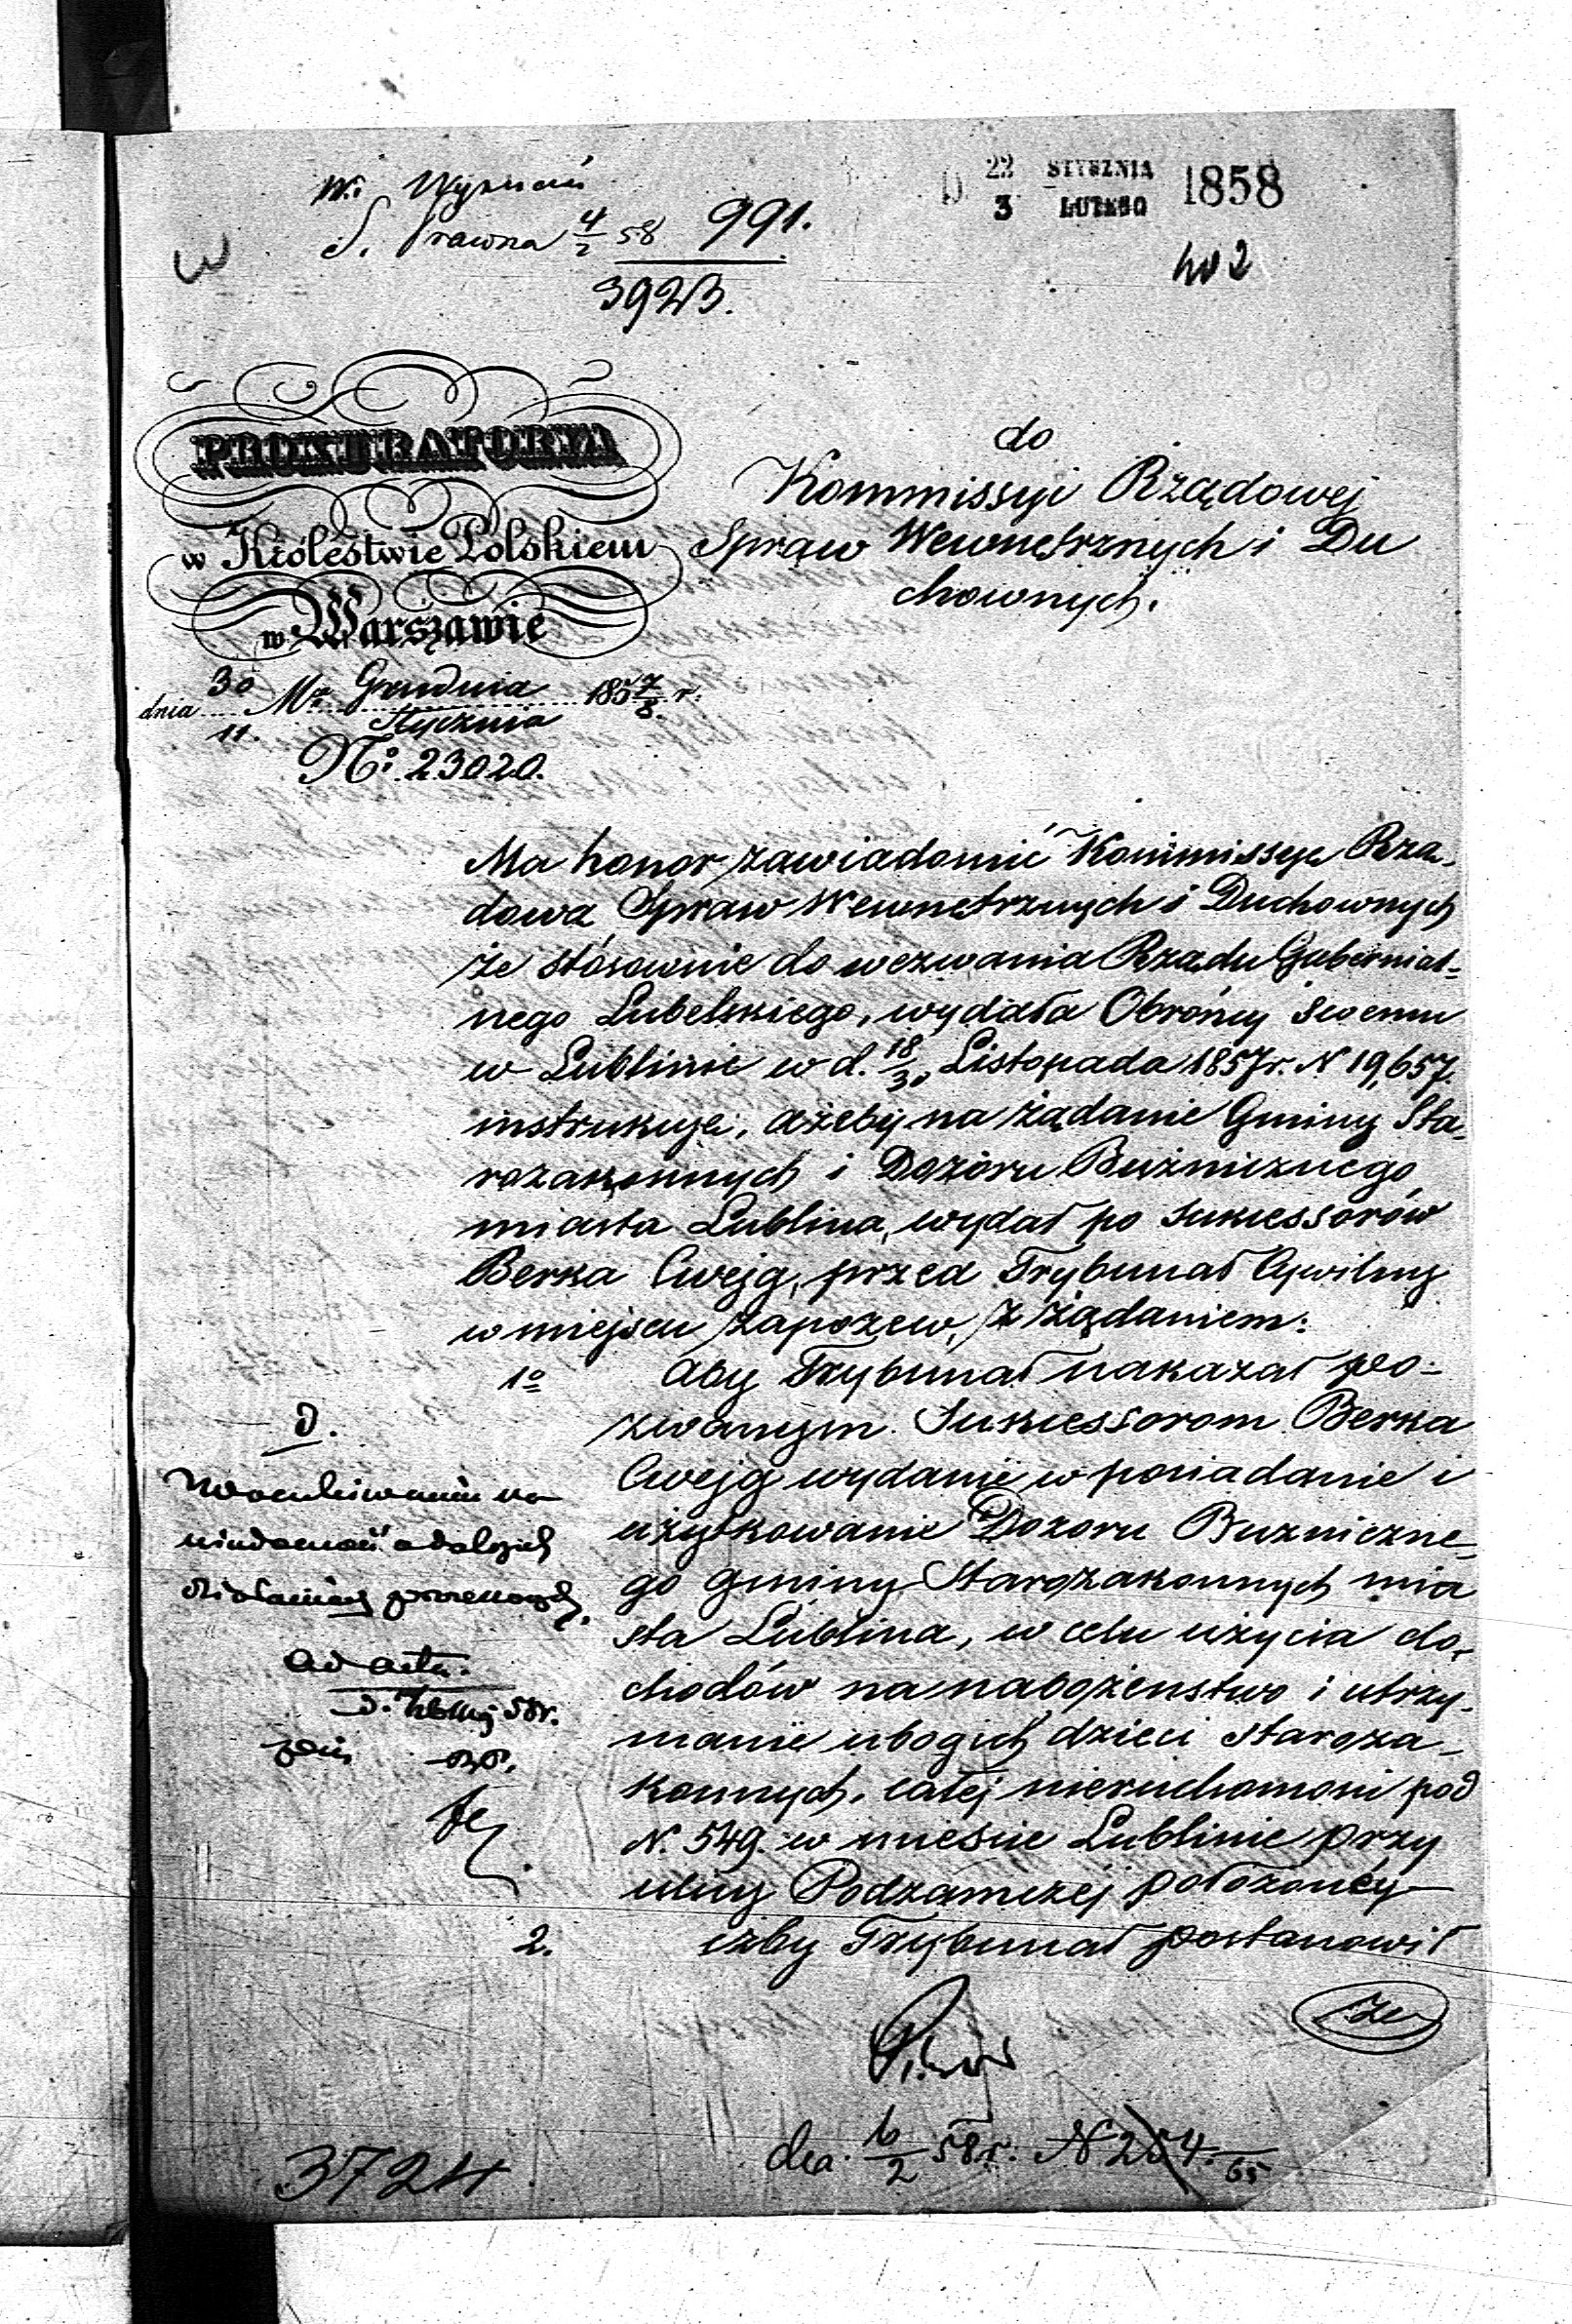 W. Wyznań
S. Prawna 4/2 58 991.
3923.
22 STYCZNIA 1858
3 LUTEGO
402
PROKURATORYA
w Królestwie Polskiem
w Warszawie
dnia 30/11. Mca Grudnia/Stycznia 1857/8 r.
No. 23020.
do
Kommissyi Rządowej
Spraw Wewnętrznych i Du
chownych.
Ma honor zawiadomić Kommissyę Rzą-
dową Spraw Wewnętrznych i Duchownych
że stósownie do wezwania Rządu Gubernial-
nego Lubelskiego, wydała Obrońcy swemu
w Lublinie w d. 18/30 Listopada 1857 r. N 19,657.
instrukcyę, ażeby na żądanie Gminy Sta-
rozakonnych i Dozoru Bużnicznego
miasta Lublina, wydał po sukcessorów
Berka Cwejg, przed Trybunał Cywilny
w miejscu zapozew, z żądaniem:
1o aby Trybunał nakazał po-
zwanym Sukcessorom Berka
Cwejg wydanie w posiadanie i
użytkowanie Dozoru Buzniczne-
go Gminy Starozakonnych mia
sta Lublina, w celu użycia do-
chodów na nabożeństwo i utrzy-
manie ubogich dzieci Staroza-
konnych, całej nieruchomości pod
N. 549. w mieście Lublinie przy
ulicy Podzamczej położonéy
2. iżby Trybunał postanowił
że
W oczekiwaniu na
wiadomość o dalszych
działaniach
ad acta.
58r.
dca. 6/2 58r. N 254.
3724